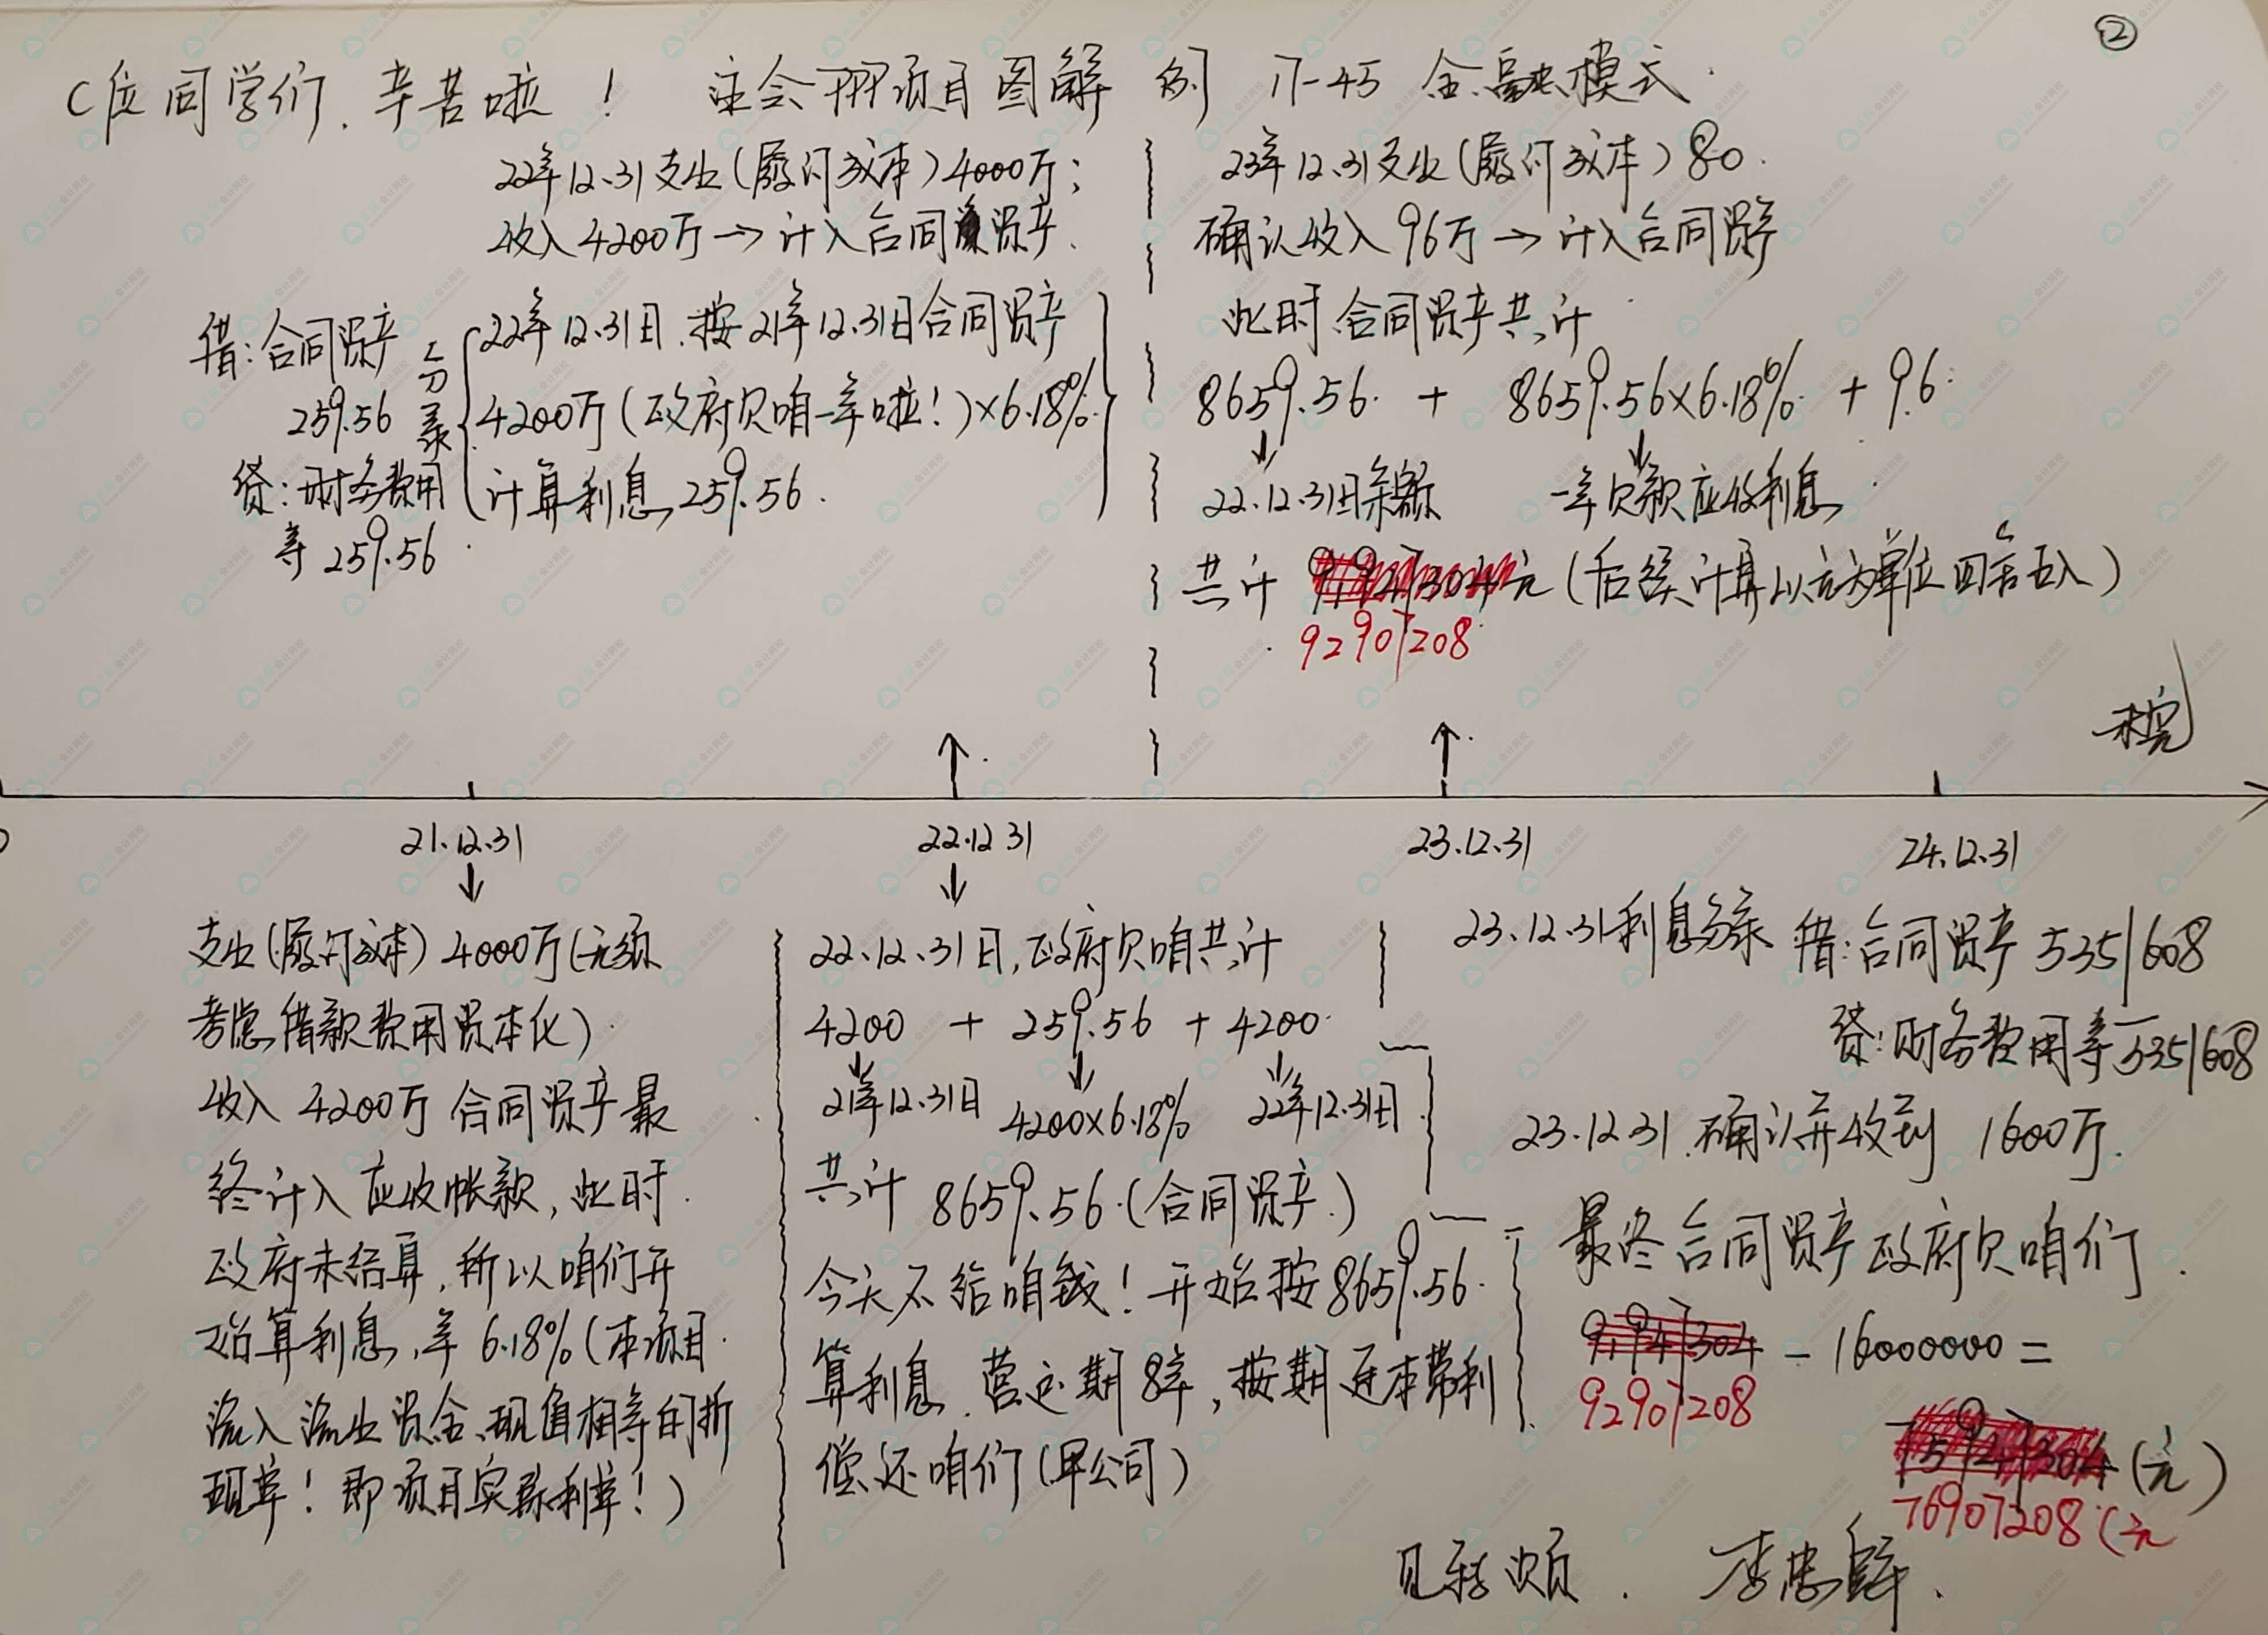 ②
C位同学们、辛苦啦! 注会PPP项目图解 例 17-45 金融模式.
22年12.31支出(履行成本)4000万;
收入4200万→计入合同资产.
借:合同资产
259.56
贷:财务费用
等259.56
分录
22年12.31日.按21年12.31日合同资产
4200万(政府欠咱一年啦!)×6.18%
计算利息259.56.
23年12.31支出(履行成本)80.
确认收入96万→计入合同资产
此时合同资产共计
8659.56 + 8659.56×6.18% + 96
22.12.31日余额 一年欠款应收利息
共计 元(后续计算以元为单位四舍五入)
92907208
未完
21.12.31 22.12 31 23.12.31 24.12.31
支出(履行成本)4000万(无须
考虑借款费用资本化)
收入4200万 合同资产最
终计入应收帐款,此时
政府未结算,所以咱们开
始算利息,率6.18%(本项目
流入流出资金、现值相等的折
现率!即项目实际利率!)
22.12.31日,政府欠咱共计
4200 + 259.56 + 4200
21年12.31日 4200×6.18% 22年12.31日
共计 8659.56(合同资产)
今天不给咱钱!开始按8659.56
算利息.营运期8年,按期还本带利
偿还咱们(甲公司)
23.12.31利息分录 借:合同资产 5351608
贷:财务费用等5351608
23.12.31.确认并收到 1600万.
最终合同资产政府欠咱们
- 16000000 =
92907208
(元)
76907208(元